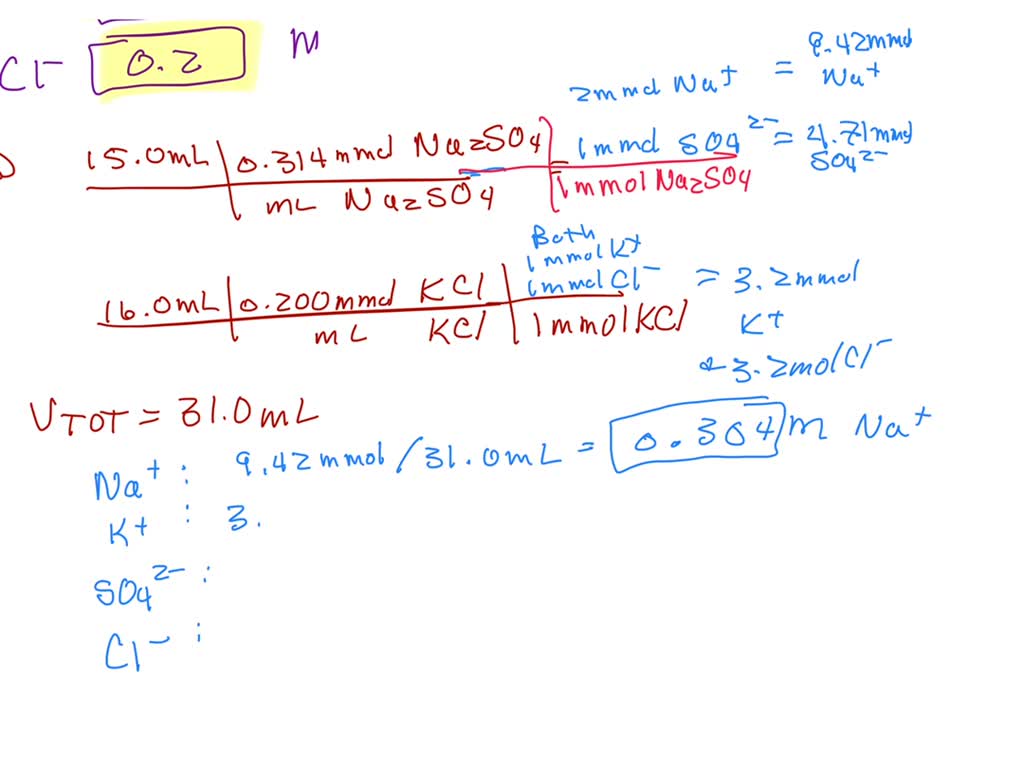 Cl⁻ 0.2 M
2 mmol Na⁺ = 9.42 mmol Na⁺
15.0mL | 0.314 mmol Na₂SO₄ | 1 mmol SO₄²⁻ = 4.71 mmol SO₄²⁻
mL Na₂SO₄ | 1 mmol Na₂SO₄
Both
1 mmol K⁺
16.0mL | 0.200 mmol KCl | 1 mmol Cl⁻ = 3.2 mmol
mL KCl | 1 mmol KCl K⁺
& 3.2 mol Cl⁻
VTOT = 31.0 mL
Na⁺ : 9.42 mmol / 31.0 mL = 0.304 M Na⁺
K⁺ : 3.
SO₄²⁻ :
Cl⁻ :